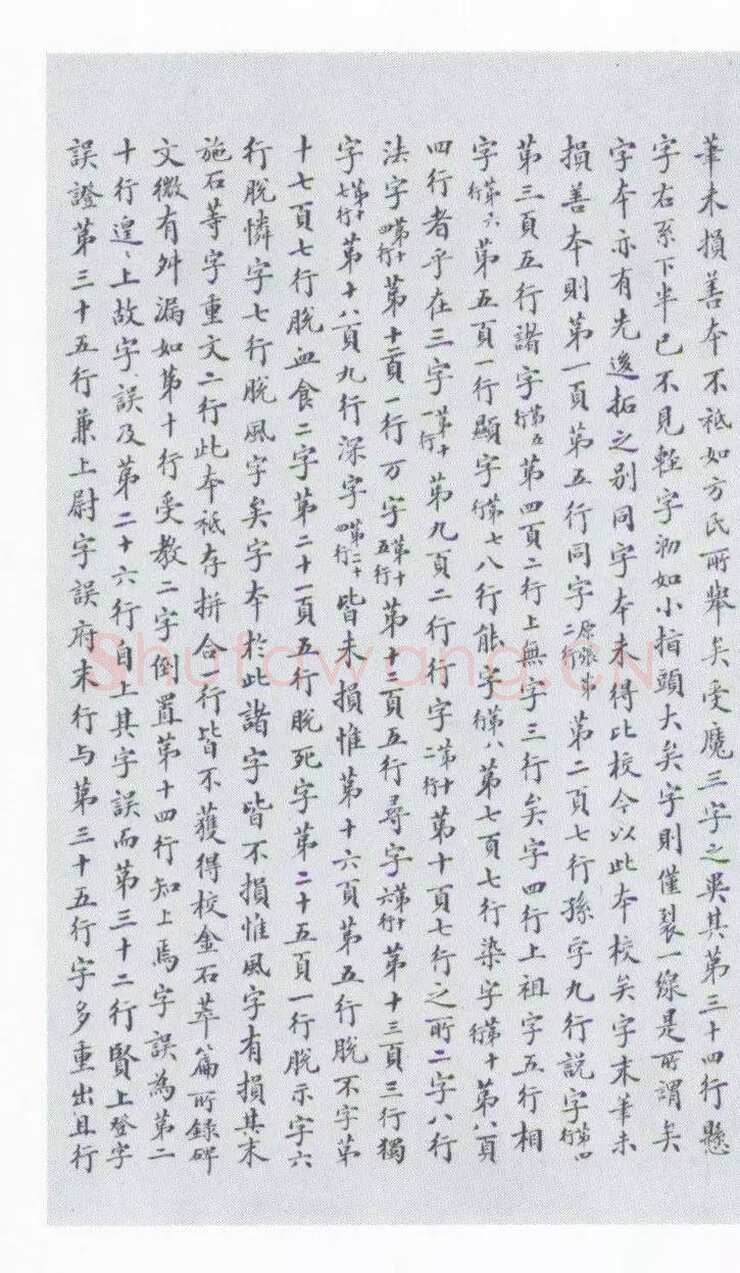 筆未損善本不祗如方氏所舉矣受魔三字之異其第三十四行懸
字右系下半已不見輕字泐如小指頭大矣字則僅裂一線是所謂矣
字本亦有先後拓之别同字本未得比校今以此本校矣字末筆未
損善本則第一頁第五行同字原張本二行第二頁七行孫字九行説字第四行
第三頁五行諸字第五行第四頁二行上無字三行矣字四行上祖字五行相
字第六行第五頁一行顯字第七行八行能字第八行第七頁七行染字第十行第八頁
四行者乎在三字第十一行第九頁二行行字第十二行第十頁七行之所二字八行
法字第十四行第十二頁一行万字第十五行第十二頁五行尋字第十六行第十三頁三行獨
字第十七行第十八頁九行深字第二十四行皆未損惟第十六頁第五行脱不字第
十七頁七行脱血食二字第二十一頁五行脱死字第二十五頁一行脱示字六
行脱憐字七行脱風字矣字本於此諸字皆不損惟風字有損其末
施石等字重文二行此本祗存拼合一行皆不獲得校金石萃篇所録碑
文微有舛漏如第十行受教二字倒置第十四行知上焉字誤為第二
十行遑、上故字誤及第二十六行自上其字誤而第三十二行賢上登字
誤證第三十五行兼上尉字誤府末行与第三十五行字多重出且行
Shufawang.CN